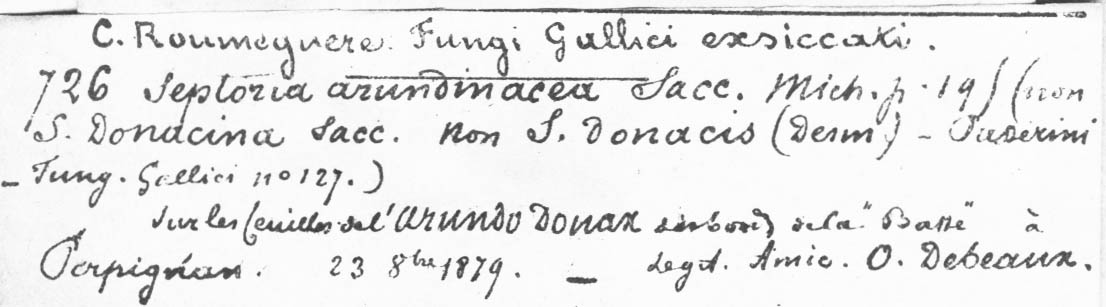 C. Roumeguere. Fungi Gallici exsiccati.
726 Septoria arundinacea Sacc. Mich. p. 19 / (non
S. Donacina Sacc. non S. Donacis (Desm) – Passerini
– Fung. Gallici no 127.)
Sur les feuilles de l'Arundo Donax des bords de la "Basse" à
Perpignan. 23 8bre 1879. — Legit. Amic. O. Debeaux.